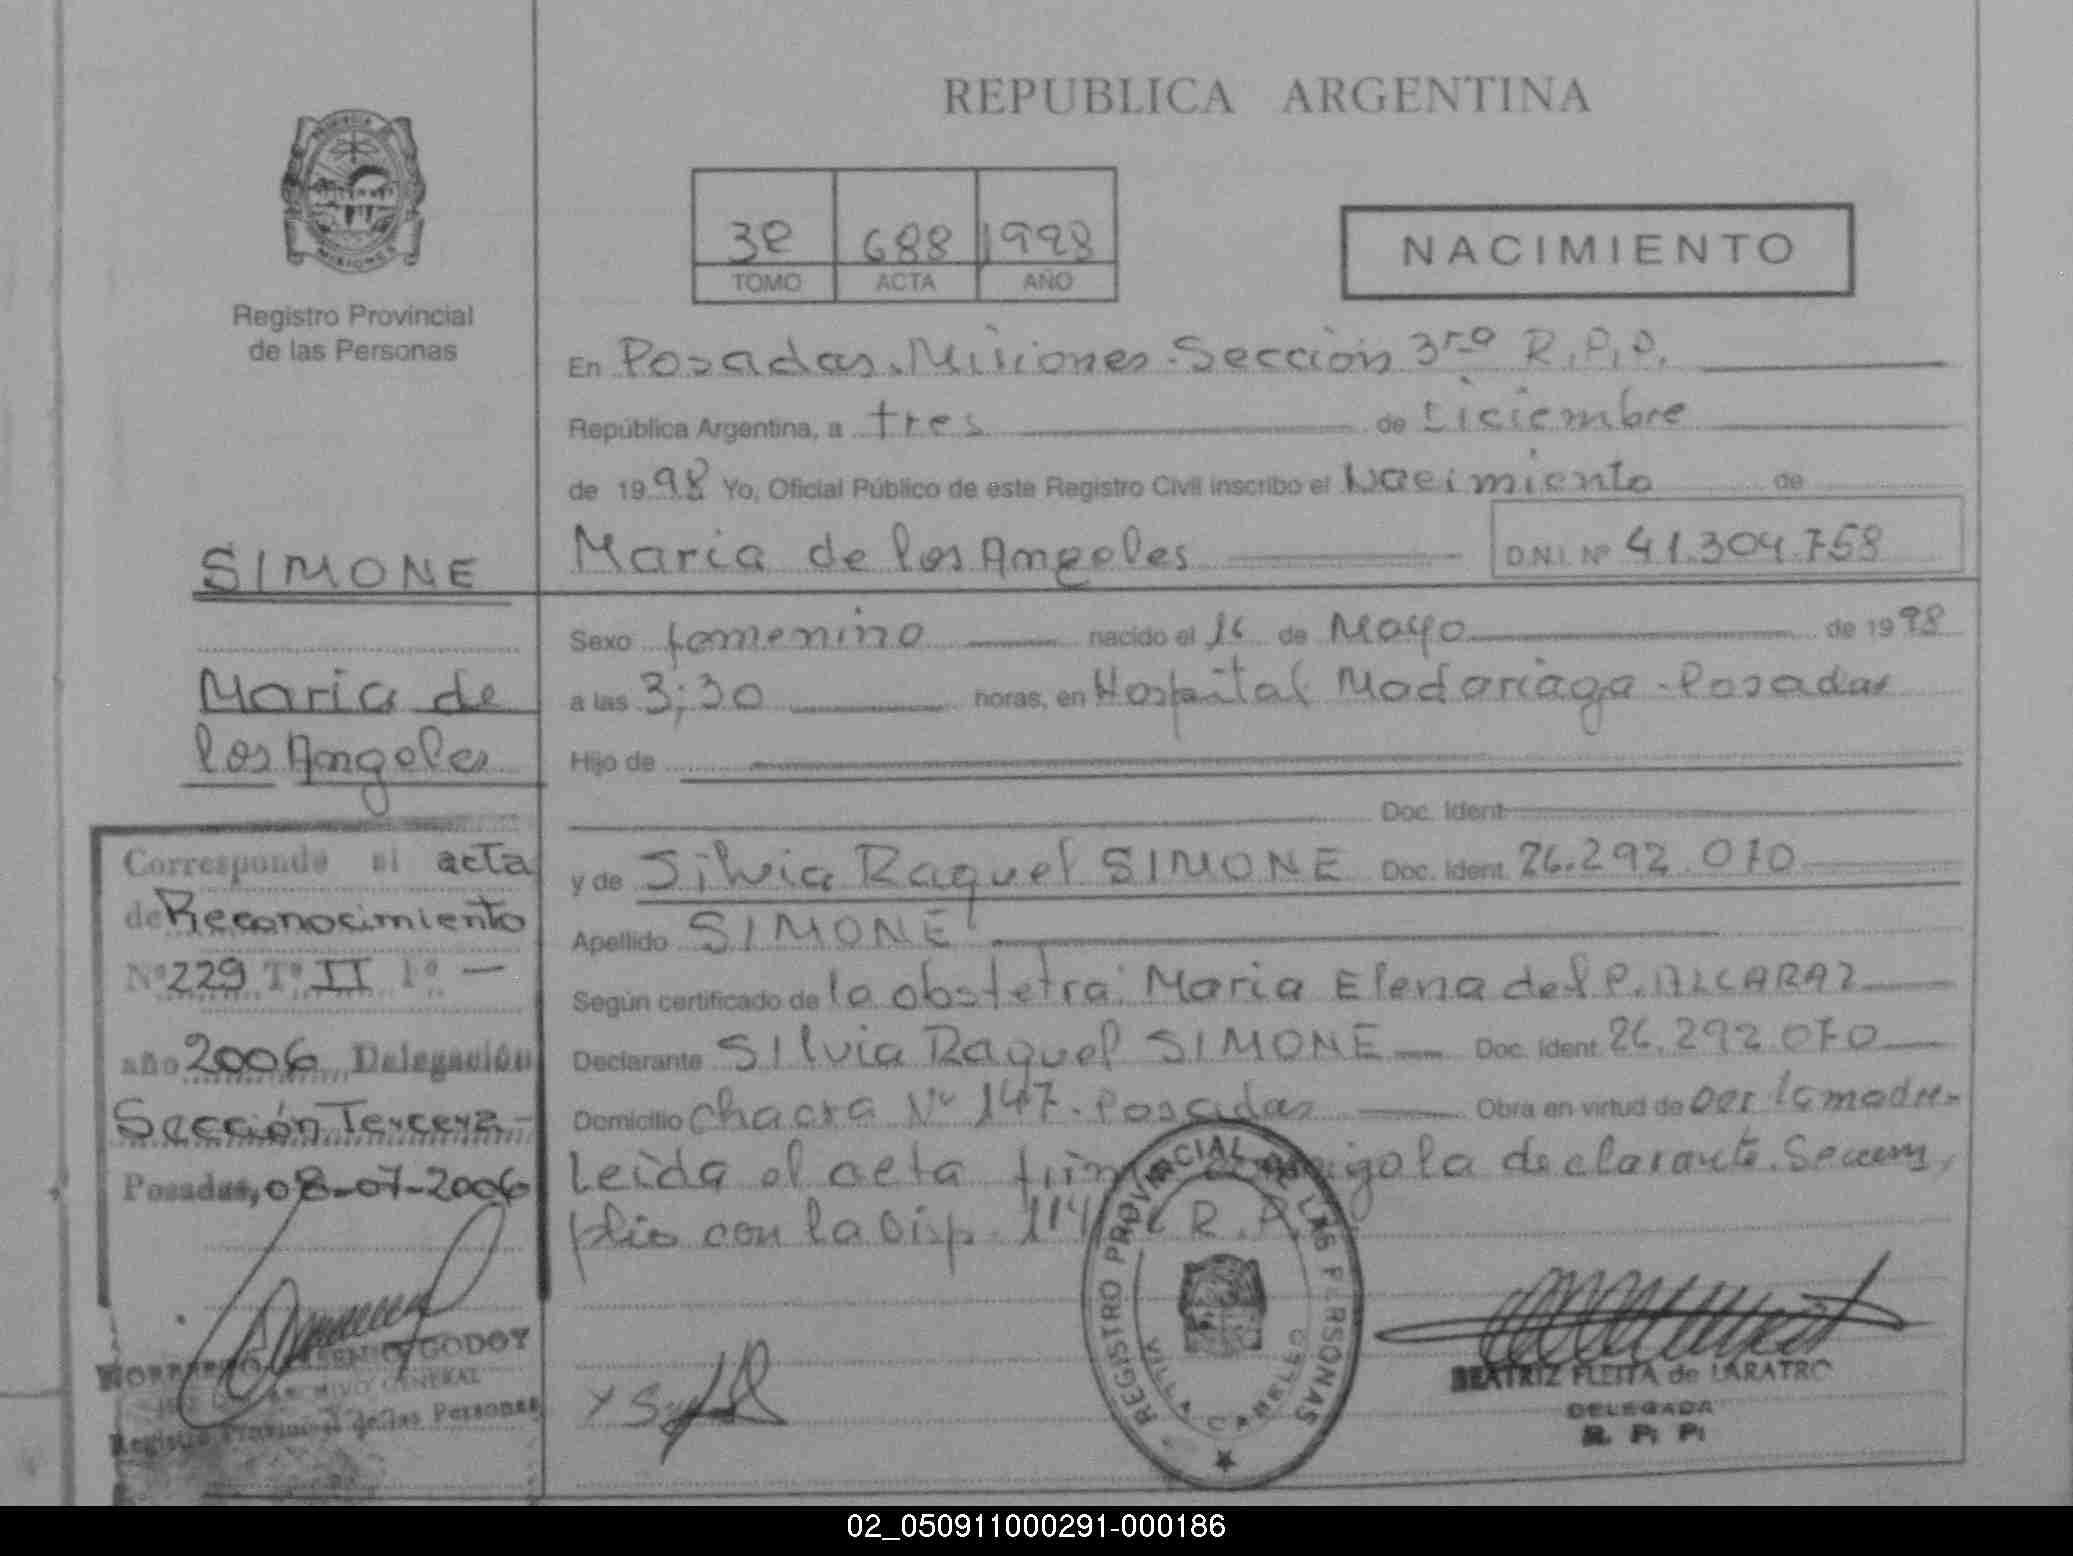 REPUBLICA ARGENTINA
Registro Provincial
de las Personas
688 1998
TOMO ACTA AÑO
NACIMIENTO
En Posadas. Misiones. Sección 3ra R.P.P.
República Argentina, a tres de Diciembre
de 1998 Yo, Oficial Público de este Registro Civil inscribo el Nacimiento de
Maria de los Angeles D.N.I. Nº 41.304.758
SIMONE
Maria de
los Angeles
Sexo femenino nacido el 16 de Mayo de 1998
a las 3;30 horas, en Hospital Madariaga - Posadas
Hijo de
Doc. Ident
y de Silvia Raquel SIMONE Doc. Ident. 26.292.070
Apellido SIMONE
Según certificado de la obstetra: Maria Elena del P. ALCARAZ
Declarante Silvia Raquel SIMONE Doc. Ident 26.292.070
Domicilio Chacra Nº 147. Posadas Obra en virtud de ser la madre-
Leida el acta la declarante. Se cum
plio con la Disp. R.P.
Corresponde al acta
de Reconocimiento
Nº 229 Tº II Fº —
año 2006 Delegación
Sección Tercera -
Posadas, 08-07-2006
GODOY
ARCHIVO GENERAL
Registro Provincial de las Personas
REGISTRO PROVINCIAL DE LAS PERSONAS
VILLA CABELLO
BEATRIZ FLEITA de LARATRO
DELEGADA
R. P. P.
02_050911000291-000186